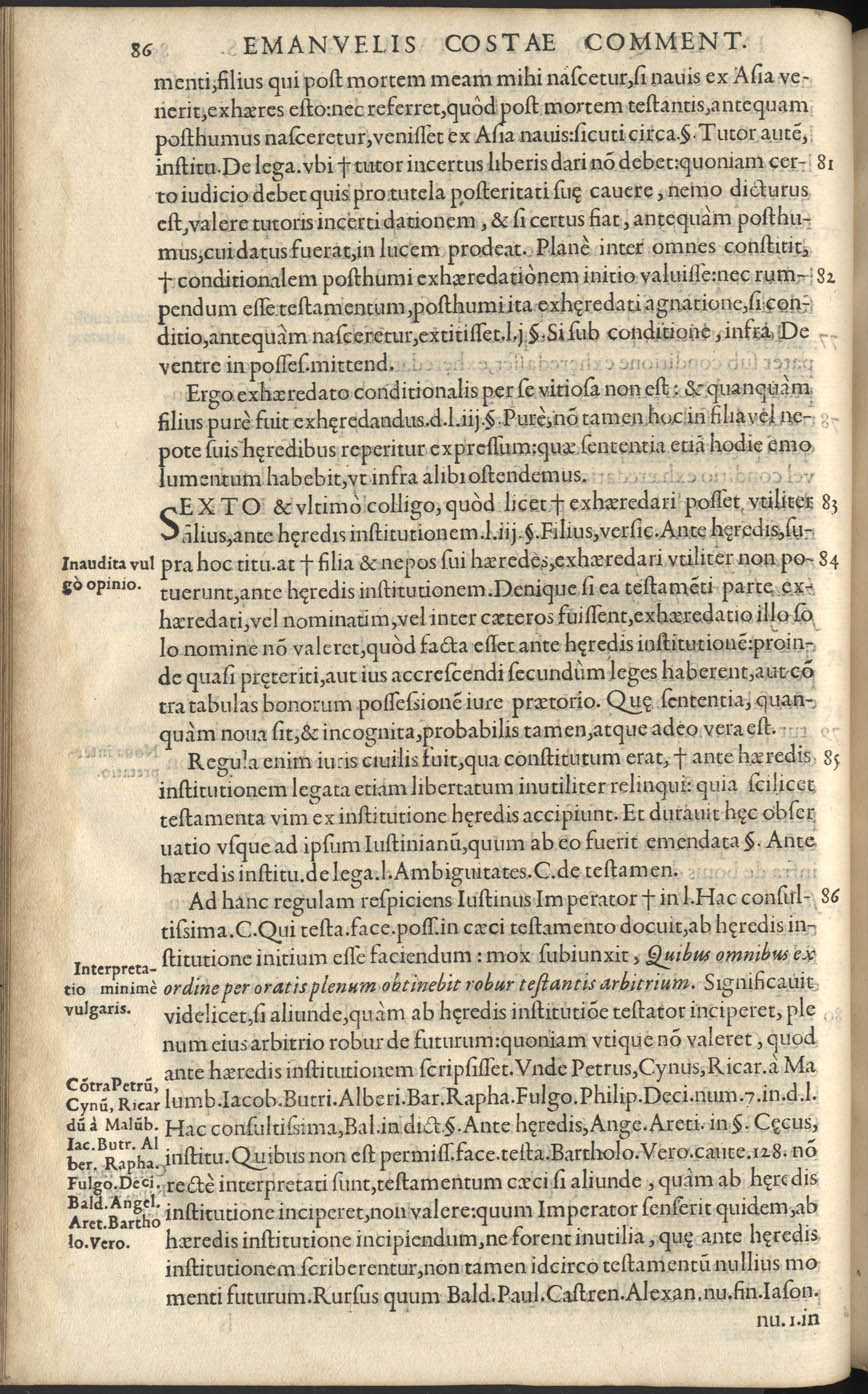 86 EMANVELIS COSTAE COMMENT.
menti,filius qui poſt mortem meam mihi naſcetur,ſi nauis ex Aſia ve-
nerit,exhæres eſto:nec referret,quòd poſt mortem teſtantis,antequam
poſthumus naſceretur,veniſſet ex Aſia nauis:ſicuti circa.§. Tutor autē,
inſtitu.De lega.vbi † tutor incertus liberis dari nō debet:quoniam cer- 81
to iudicio debet quis pro tutela poſteritati ſuę cauere, nemo dicturus
eſt,valere tutoris incerti dationem, & ſi certus fiat, antequàm poſthu-
mus,cui datus fuerat,in lucem prodeat. Planè inter omnes conſtitit,
† conditionalem poſthumi exhæredatiònem initio valuiſſe:nec rum- 82
pendum eſſe teſtamentum,poſthumi ita exhęredati agnatione,ſi con-
ditio,antequàm naſceretur,extitiſſet.l.j.§.Si ſub conditione, infrà, De
ventre in poſſeſ.mittend.
Ergo exhæredato conditionalis per ſe vitioſa non eſt: & quanquàm
filius purè fuit exhęredandus.d.l.iij.§.Purè,nō tamen hoc in filia vel ne-
pote ſuis hęredibus reperitur expreſſum:quæ ſententia etiā hodie emo
lumentum habebit,vt infra alibi oſtendemus.
SEXTO & vltimò colligo, quòd licet † exhæredari poſſet vtiliter 83
ālius,ante hęredis inſtitutionem.l.iij.§.Filius,verſic.Ante hęredis,ſu-
pra hoc titu.at † filia & nepos ſui hæredes,exhæredari vtiliter non po- 84
Inaudita vul
gò opinio.
tuerunt,ante hęredis inſtitutionem.Denique ſi ea teſtamēti parte ex-
hæredati,vel nominatim,vel inter cæteros fuiſſent,exhæredatio illo ſo
lo nomine nō valeret,quòd facta eſſet ante hęredis inſtitutionē:proin-
de quaſi pręteriti,aut ius accreſcendi ſecundùm leges haberent,aut cō
tra tabulas bonorum poſſeſsionē iure prætorio. Quę ſententia, quan-
quàm noua ſit,& incognita,probabilis tamen,atque adeo vera eſt.
Regula enim iuris ciuilis fuit,qua conſtitutum erat, † ante hæredis 85
inſtitutionem legata etiam libertatum inutiliter relinqui: quia ſcilicet
teſtamenta vim ex inſtitutione hęredis accipiunt. Et durauit hęc obſer
uatio vſque ad ipſum Iuſtinianū,quum ab eo fuerit emendata §. Ante
hæredis inſtitu.de lega.l.Ambiguitates.C.de teſtamen.
Ad hanc regulam reſpiciens Iuſtinus Imperator † in l.Hac conſul- 86
tiſsima.C.Qui teſta.face.poſſ.in cæci teſtamento docuit,ab hęredis in-
ſtitutione initium eſſe faciendum: mox ſubiunxit, Quibus omnibus ex
Interpreta-
tio minimè
vulgaris.
ordine per oratis plenum obtinebit robur teſtantis arbitrium. Significauit
videlicet,ſi aliunde,quàm ab hęredis inſtitutiōe teſtator inciperet, ple
num eius arbitrio robur de futurum:quoniam vtique nō valeret, quod
ante hæredis inſtitutionem ſcripſiſſet.Vnde Petrus,Cynus,Ricar.à Ma
Cōtra Petrū,
Cynū, Ricar
dū à Malūb.
Iac. Butr. Al
ber. Rapha.
Fulgo.Deci.
Bald.Angel.
Aret.Bartho
lo.Vero.
lumb.Iacob.Butri.Alberi.Bar.Rapha.Fulgo.Philip.Deci.num.7.in.d.l.
Hac conſultiſsima,Bal.in dict.§.Ante hęredis,Ange. Areti. in §. Cęcus,
inſtitu.Quibus non eſt permiſſ.face.teſta.Bartholo.Vero.caute.128. nō
rectè interpretati ſunt,teſtamentum cæci ſi aliunde, quàm ab hęredis
inſtitutione inciperet,non valere:quum Imperator ſenſerit quidem,ab
hæredis inſtitutione incipiendum,ne forent inutilia, quę ante hęredis
inſtitutionem ſcriberentur,non tamen idcirco teſtamentū nullius mo
menti futurum.Rurſus quum Bald.Paul.Caſtren.Alexan.nu.fin.Iaſon.
nu.1.in